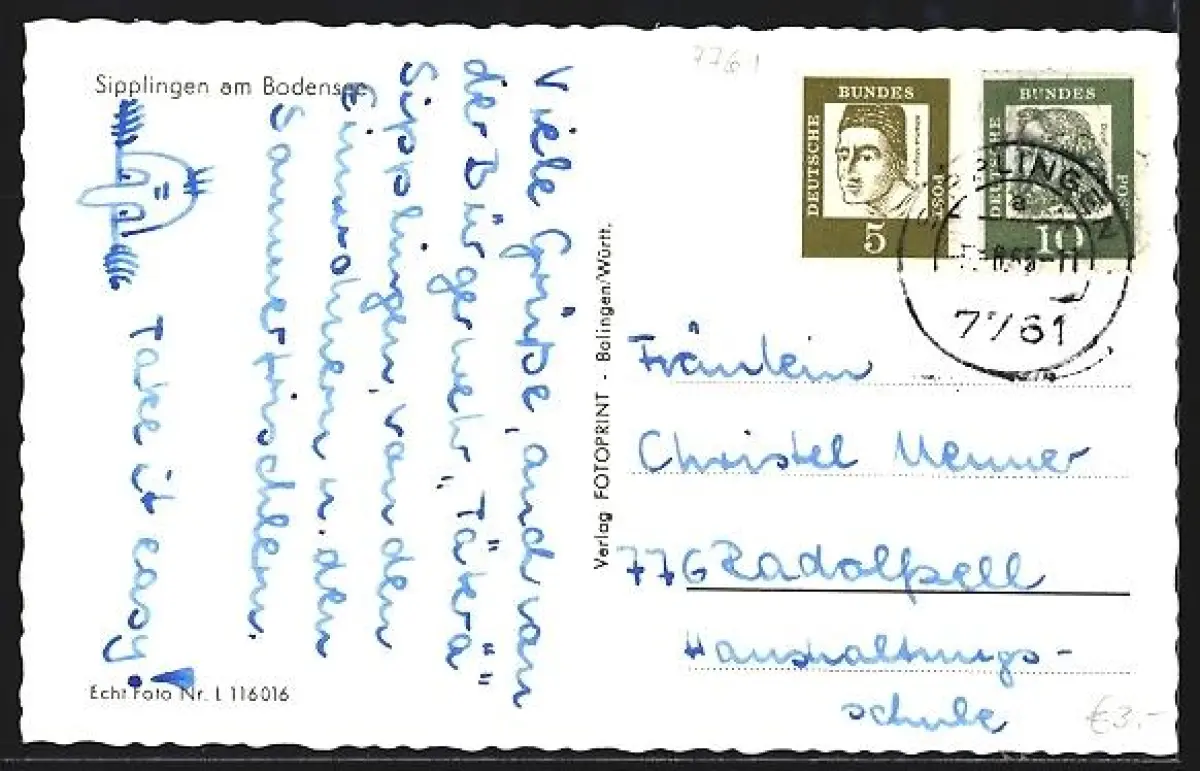 Sipplingen am Bodensee
Viele Grüße, auch von
der Bürgerwehr, "Täterä"
Sipplingen, von den
Einwohnern u. den
Sommerfrischlern.
Take it easy!
Echt Foto Nr. L 116016
Verlag FOTOPRINT - Balingen/Württ.
7761
DEUTSCHE BUNDES POST
5
DEUTSCHE BUNDES POST
10
SIPPLINGEN
a
7761
Fräulein
Christel Menner
776 Radolfzell
Haushaltungs-
schule
€3.-